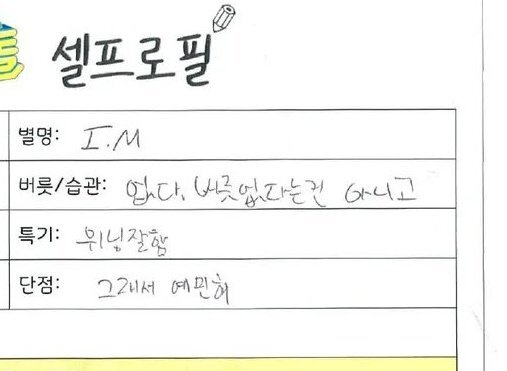 셀프로필
별명: I.M
버릇/습관: 없다. 버릇없다는건 아니고
특기: 위닝잘함
단점: 그래서 예민해